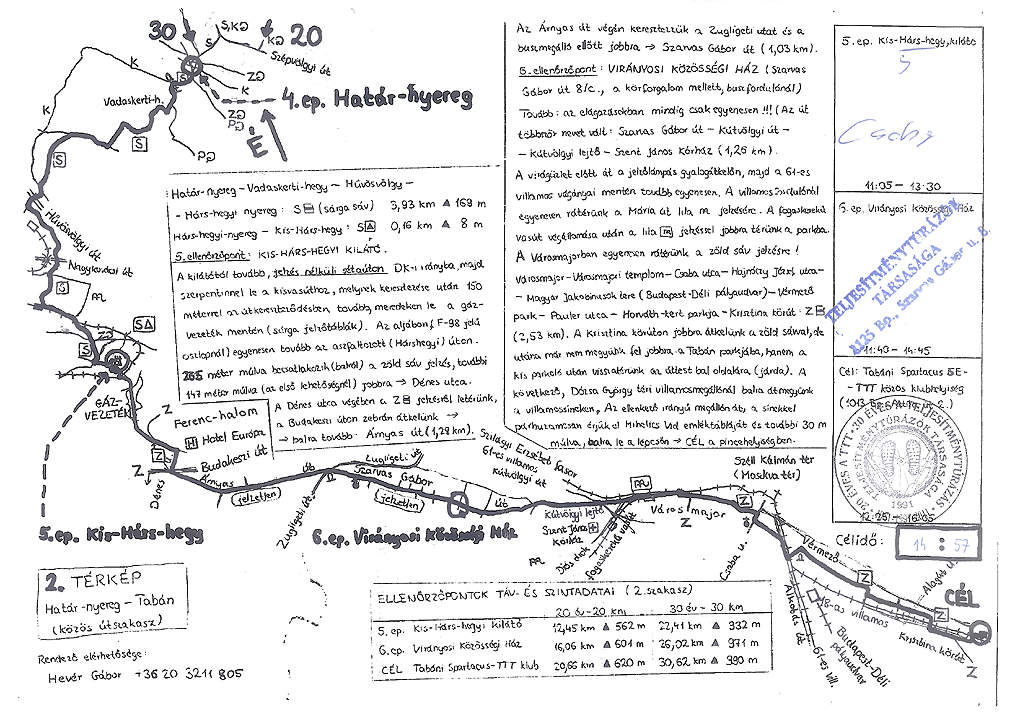 30
20
S,K
Szépvölgyi út
K
S
Z
Vadaskerti-h.
4.ep. Határ-nyereg
É
S
P
Hűvösvölgyi út
Nagykovácsi út
Határ-nyereg-Vadaskerti-hegy-Hűvösvölgy-
-Hárs-hegyi nyereg: S (sárga sáv) 3,93 km ▲ 169 m
Hárs-hegyi-nyereg - Kis-Hárs-hegy: S▲ 0,16 km ▲ 8 m
5. ellenőrzőpont: KIS-HÁRS-HEGYI KILÁTÓ.
A kilátótól tovább, jelzés nélküli sétaúton DK-i irányba, majd
szerpentinnel le a kisvasúthoz, melynek keresztezése után 150
méterrel az útkereszteződésben tovább meredeken le a gáz-
vezeték mentén (sárga jelzőtáblák). Az aljában (F-98 jelű
oszlopnál) egyenesen tovább az aszfaltozott (Hárshegyi) úton.
265 méter múlva becsatlakozik (balról) a zöld sáv jelzés, további
147 méter múlva (az első lehetőségnél) jobbra → Dénes utca.
A Dénes utca végében a Z jelzésről letérünk,
a Budakeszi úton zebrán átkelünk →
→ balra tovább: Árnyas út (1,29 km).
Az Árnyas út végén keresztezzük a Zugligeti utat és a
buszmegálló előtt jobbra → Szarvas Gábor út (1,03 km).
6. ellenőrzőpont: VIRÁNYOSI KÖZÖSSÉGI HÁZ (Szarvas
Gábor út 8/c., a körforgalom mellett, buszfordulónál)
Tovább: az elágazásokban mindig csak egyenesen!!! (Az út
többször nevet vált: Szarvas Gábor út - Kútvölgyi út -
- Kútvölgyi lejtő - Szent János Kórház (1,26 km).
A virágüzlet előtt át a jelzőlámpás gyalogátkelőn, majd a 61-es
villamos vágányai mentén tovább egyenesen. A villamosfordulónál
egyenesen rátérünk a Mária út lila m jelzésére. A fogaskerekű
vasút végállomása után a lila m jelzéssel jobbra térünk a parkba.
A Városmajorban egyenesen rátérünk a zöld sáv jelzésre!
Városmajor-Városmajori templom-Csaba utca-Hajnóczy József utca-
-Magyar Jakobinusok tere (Budapest-Déli pályaudvar)-Vérmező
park-Pauler utca-Horváth-kert parkja-Krisztina körút: Z
(2,53 km). A Krisztina körúton jobbra átkelünk a zöld sávval, de
utána már nem megyünk fel jobbra a Tabán parkjába, hanem a
kis parkoló után visszatérünk az úttest bal oldalára (járda). A
következő, Dózsa György téri villamosmegállónál balra átmegyünk
a villamossíneken. Az ellenkező irányú megállónál, a sínekkel
párhuzamosan érjük el Mihelics Vid emléktábláját és további 30 m
múlva, balra le a lépcsőn → CÉL a pincehelyiségben.
5.ep. Kis-Hárs-hegy, kilátó
5
11:05 - 13:30
6.ep. Virányosi Közösségi Ház
TELJESÍTMÉNYTÚRÁZÓK
TÁRSASÁGA
1125 Bp. Szarvas Gábor u. 8.
11:40 - 14:45
Cél: Tabáni Spartacus SE-
-TTT közös klubhelyiség
20 ÉVES A TTT
TELJESÍTMÉNYTÚRÁZÓK TÁRSASÁGA
1991
12:25 - 16:05
Célidő: 14:57
GÁZ-
VEZETÉK
Ferenc-halom
H Hotel Európa
Budakeszi út
Z
Dénes
Árnyas út
jelzetlen
Zugligeti út
Szarvas Gábor út
jelzetlen
Zugligeti út
Szilágyi Erzsébet fasor
61-es villamos
Kútvölgyi út
Kútvölgyi lejtő
Szent János
kórház
Diós árok
fogaskerekű vasút
Városmajor
Z
Széll Kálmán tér
(Moszkva tér)
Csaba u.
Vérmező
Alkotás út
61-es vill.
18-as villamos
Budapest-Déli
pályaudvar
Krisztina körút
Alagút u.
CÉL
5.ep. Kis-Hárs-hegy
6.ep. Virányosi Közösségi Ház
2. TÉRKÉP
Határ-nyereg-Tabán
(közös útszakasz)
Rendező elérhetősége:
Hevér Gábor +36 20 3211 805
ELLENŐRZŐPONTOK TÁV- ÉS SZINTADATAI (2.szakasz)
20 év-20 km 30 év-30 km
5. ep. Kis-Hárs-hegyi kilátó 12,45 km ▲ 562 m 22,41 km ▲ 932 m
6.ep. Virányosi Közösségi Ház 16,06 km ▲ 601 m 26,02 km ▲ 971 m
CÉL Tabáni Spartacus-TTT klub 20,66 km ▲ 620 m 30,62 km ▲ 990 m